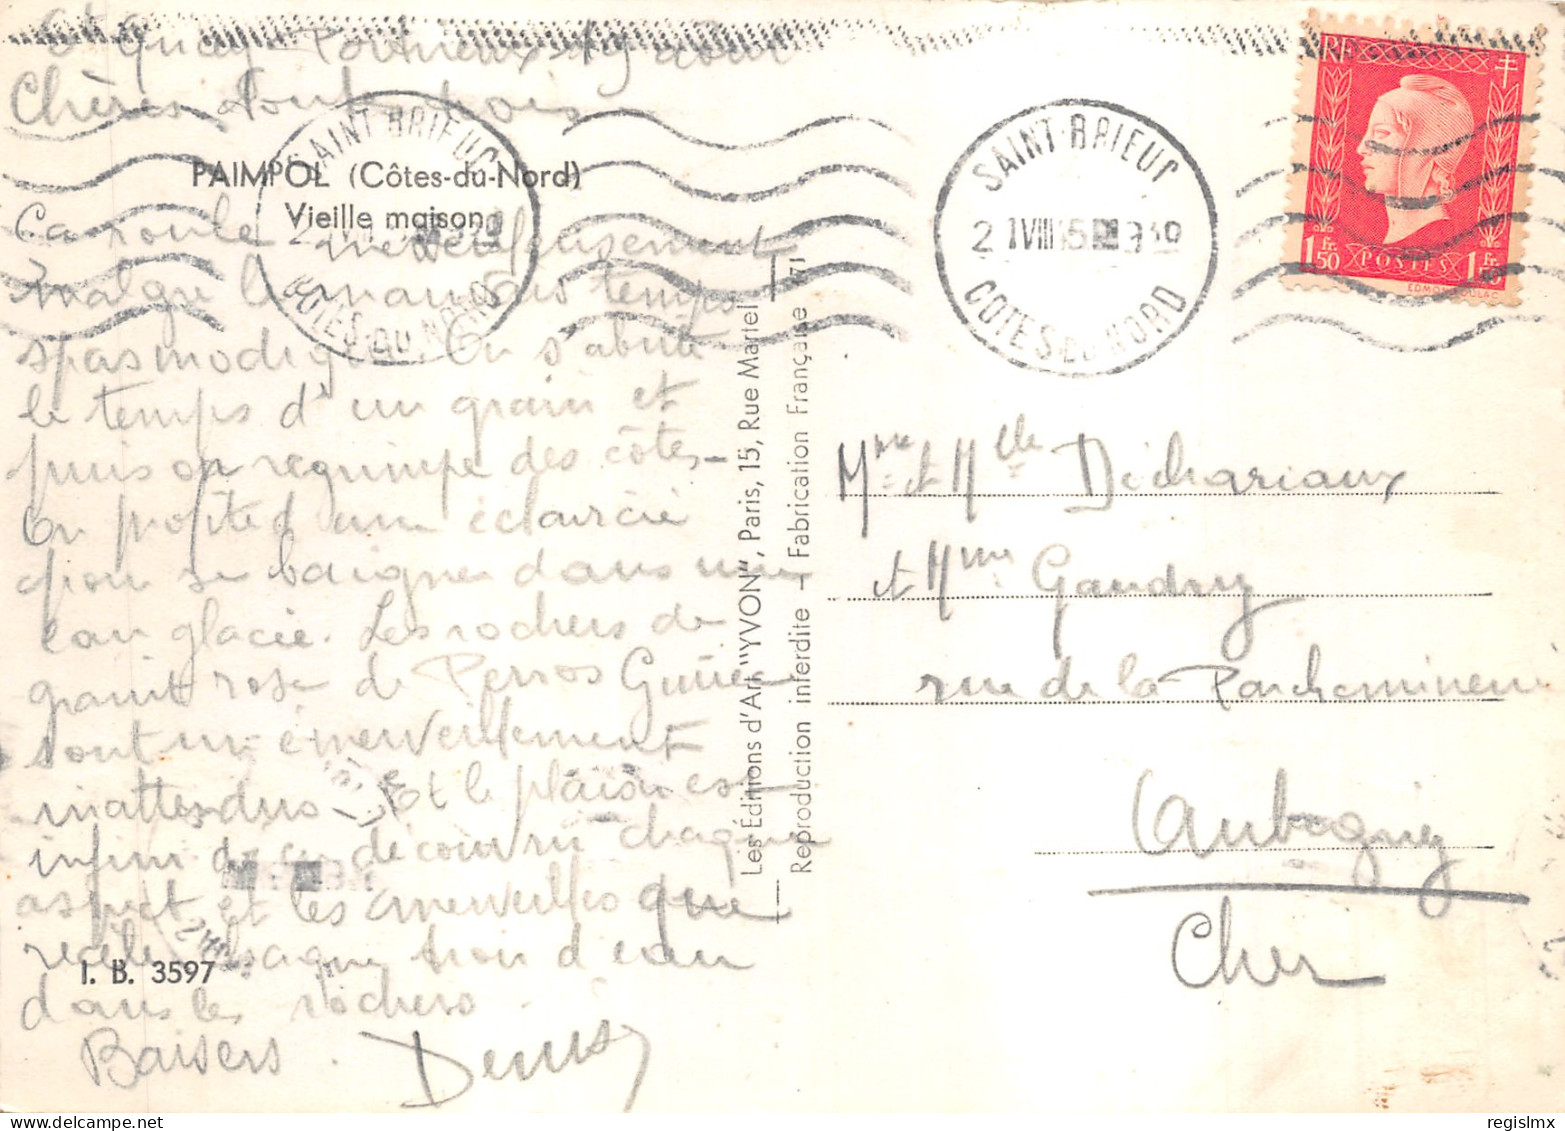 St Quay Portrieux 19 août
Chères toutes trois
PAIMPOL (Côtes-du-Nord)
Vieille maison
Ca roule merveilleusement
malgré le mauvais temps
spasmodique. On s'abrite
le temps d'un grain et
puis on regrimpe des côtes –
On profite d'une éclaircie
pour se baigner dans une
eau glacée. Les rochers de
granit rose de Perros Guirec
sont un émerveillement
inattendus – Et le plaisir est
infini de découvrir chaque
aspect et les merveilles que
recèle chaque trou d'eau
dans les rochers.
Baisers. Denise
I. B. 3597
Les Éditions d'Art "YVON", Paris, 15, Rue Martel
Reproduction interdite — Fabrication Française
SAINT-BRIEUC
COTES-DU-NORD
SAINT-BRIEUC
COTES-DU-NORD
RF
1 Fr. 50 POSTES 1 Fr. 50
EDMOND DULAC
Mme et Mlle Déchariaux
et Mme Gaudry
rue de la Parcheminerie
Aubigny
Cher
regisImx